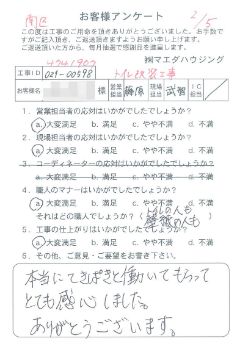 南区
お客様アンケート
2/5
この度は工事のご用命を頂きありがとうございました。お手数で
すがご記入頂き、ご返送頂きますようお願い申し上げます。
ご返送頂いた方から、毎月抽選で感謝日を進呈します。
4741902
㈱マエダハウジング
工事ID 021-00598
トイレ改装工事
お客様名 様 営業担当 現場担当 武智 ICG担当
1. 営業担当者の応対はいかがでしたでしょうか?
a.大変満足 b.満足 c.やや不満 d.不満
2. 現場担当者の応対はいかがでしたでしょうか?
a.大変満足 b.満足 c.やや不満 d.不満
3. コーディネーターの応対はいかがでしたでしょうか?
a.大変満足 b.満足 c.やや不満 d.不満
4. 職人のマナーはいかがでしたでしょうか?
a.大変満足 b.満足 c.やや不満 d.不満
それはどの職人でしょうか?(トイレの人も 壁紙の人も)
5. 工事の仕上がりはいかがでしたでしょうか?
a.大変満足 b.満足 c.やや不満 d.不満
6. その他、ご意見・ご要望をお書き下さい。
本当にてきぱきと働いてもらって
とても感心しました。
ありがとうございます。